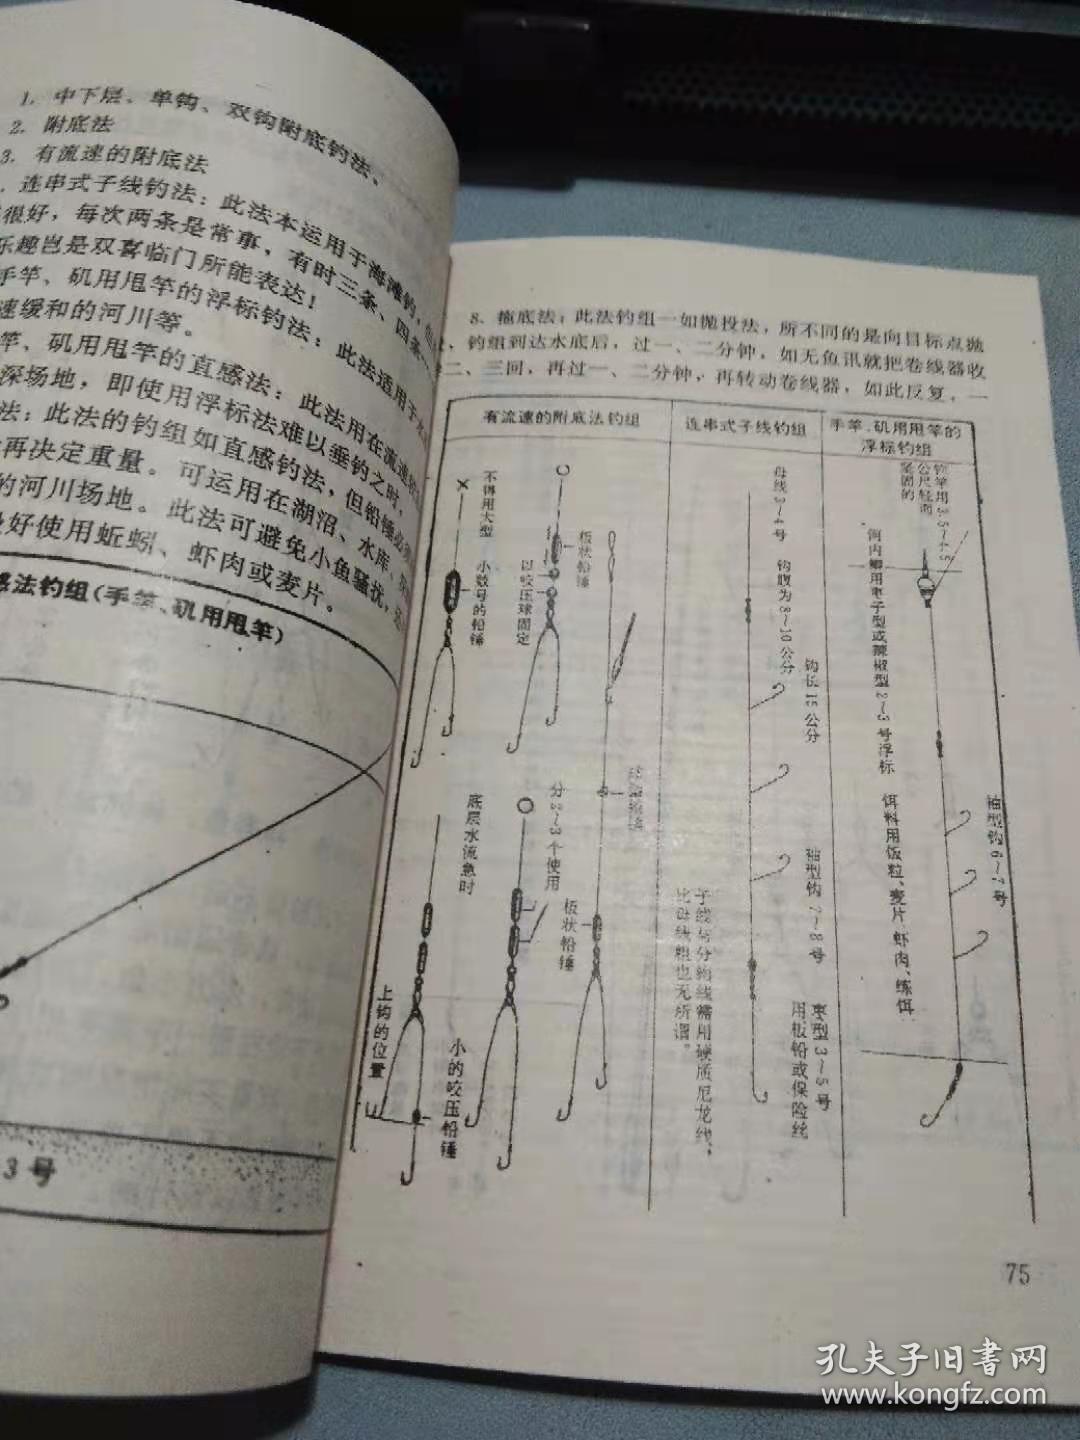 1. 中下层、单钩、双钩附底钓法。
2. 附底法
3. 有流速的附底法
. 连串式子线钓法：此法本运用于海滩钓，
很好，每次两条是常事，有时三条、四条
乐趣岂是双喜临门所能表达！
手竿、矶用甩竿的浮标钓法：此法适用于水
速缓和的河川等。
竿、矶用甩竿的直感法：此法用在流速
深场地，即使用浮标法难以垂钓之时，
法：此法的钓组如直感钓法，但铅锤必须
再决定重量。可运用在湖沼、水库、
的河川场地。此法可避免小鱼骚扰，
好使用蚯蚓、虾肉或麦片。
感法钓组（手竿、矶用甩竿）
3号
8. 拖底法：此法钓组一如抛投法，所不同的是向目标点抛
，钓组到达水底后，过一、二分钟，如无鱼讯就把卷线器收
二、三回，再过一、二分钟，再转动卷线器，如此反复，一
有流速的附底法钓组
连串式子线钓组
手竿、矶用甩竿的
浮标钓组
不得用大型
小数号的铅锤
以咬压球固定
板状铅锤
底层水流急时
分2～3个使用
板状铅锤
上钩的位置
小的咬压铅锤
母线3～4号
钩腹为8～10公分
钩长15公分
袖型钩7～8号
子线与分钩线需用硬质尼龙线，
比母线粗也无所谓。
枣型3～5号
用板铅或保险丝
软竿用3.5～4.5
公尺轻而
坚固的
河内鲫用电子型或辣椒型2～3号浮标
饵料用饭粒、麦片、虾肉、练饵
袖型钩6～7号
75
孔夫子旧书网
www.kongfz.com